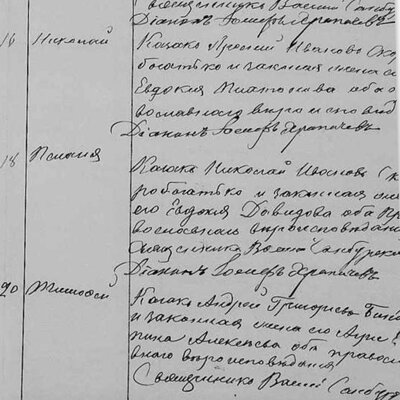 Священника Василій Самбур
Діаконъ Іосифъ Храпачевъ
16 Николай Казакъ Арсеній Ивановъ Ско
богатько и законная жена е
Евдокия Платонова оба
вославнаго вероисповед
Діаконъ Іосифъ Храпачевъ
18 Пелагия Казакъ Николай Ивановъ Ск
робогатько и законная же
его Евдокия Давидова оба пр
вославнаго вероисповедан
Священника Василій Самбурск
Діаконъ Іосифъ Храпачевъ
20 Тимофей Казакъ Андрей Григорьевъ
и законная жена его Агри
пина Алексѣева оба правос
внаго вероисповедания
Священника Василій Самбур